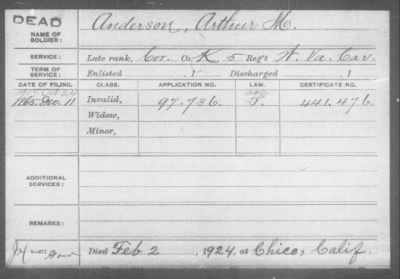 DEAD
NAME OF SOLDIER: Anderson, Arthur M.
SERVICE: Late rank, Cor. Co. K 5 Reg't W. Va. Cav.
TERM OF SERVICE: Enlisted , 1 Discharged , 1
DATE OF FILING. CLASS. APPLICATION NO. LAW. CERTIFICATE NO.
1865. Dec. 11 Invalid, 97.736 441.476
Widow,
Minor,
ADDITIONAL SERVICES:
REMARKS:
Died Feb 2 , 1924, at Chico, Calif.